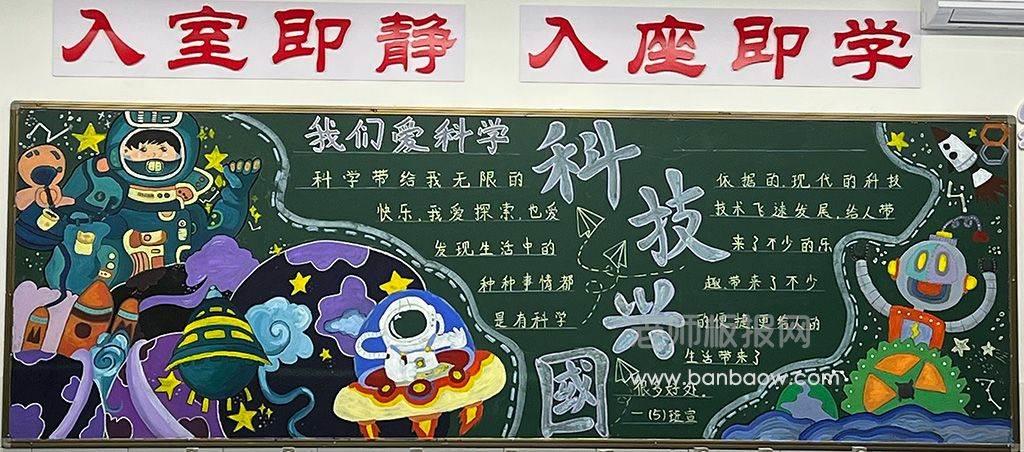 入室即静 入座即学
我们爱科学
科学带给我无限的
快乐,我爱探索,也爱
发现生活中的
种种事情都
是有科学
科技兴國
依据的,现代的科技
技术飞速发展,给人带
来了不少的乐
趣带来了不少
的便捷,更给人的
生活带来了
很多好处。
一(5)班宣
老师板报网
www.banbaow.com